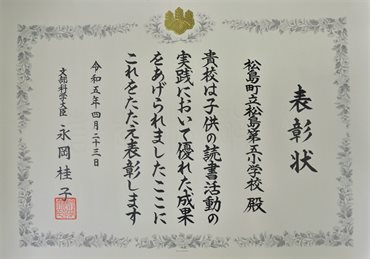 表彰状
松島町立松島第五小学校 殿
貴校は子供の読書活動の
実践において優れた成果
をあげられましたここに
これをたたえ表彰します
令和五年四月二十三日
文部科学大臣 永岡桂子